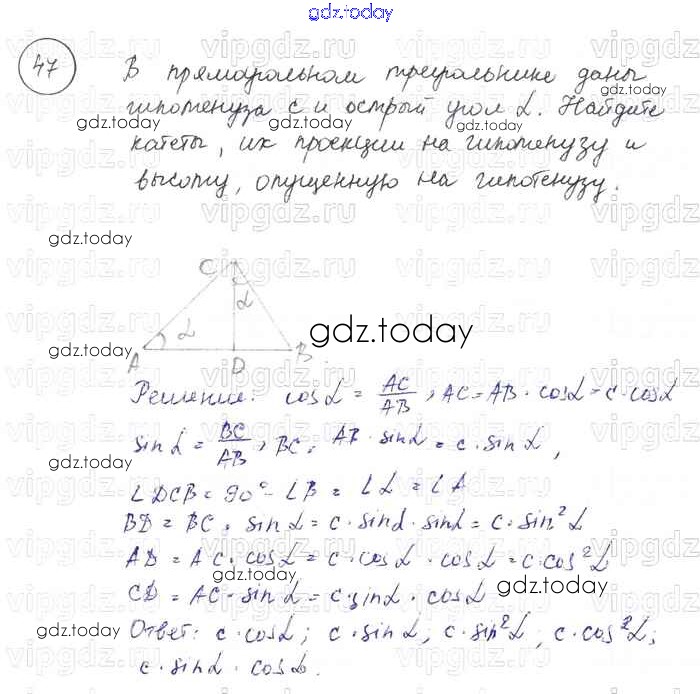 gdz.today
47
В прямоугольном треугольнике даны
гипотенуза c и острый угол α. Найдите
катеты, их проекции на гипотенузу и
высоту, опущенную на гипотенузу.
gdz.today gdz.today
gdz.today gdz.today
gdz.today
C
α
α
A D B
gdz.today
Решение: cos α = AC/AB, AC = AB · cos α = c · cos α
sin α = BC/AB, BC = AB · sin α = c · sin α,
gdz.today
∠DCB = 90° - ∠B = ∠α = ∠A
BD = BC · sin α = c · sin α · sin α = c · sin² α
AD = AC · cos α = c · cos α · cos α = c · cos² α
CD = AC · sin α = c · sin α · cos α
gdz.today
Ответ: c · cos α; c · sin α, c · sin² α; c · cos² α;
gdz.today
c · sin α · cos α.
gdz.today
vipgdz.ru